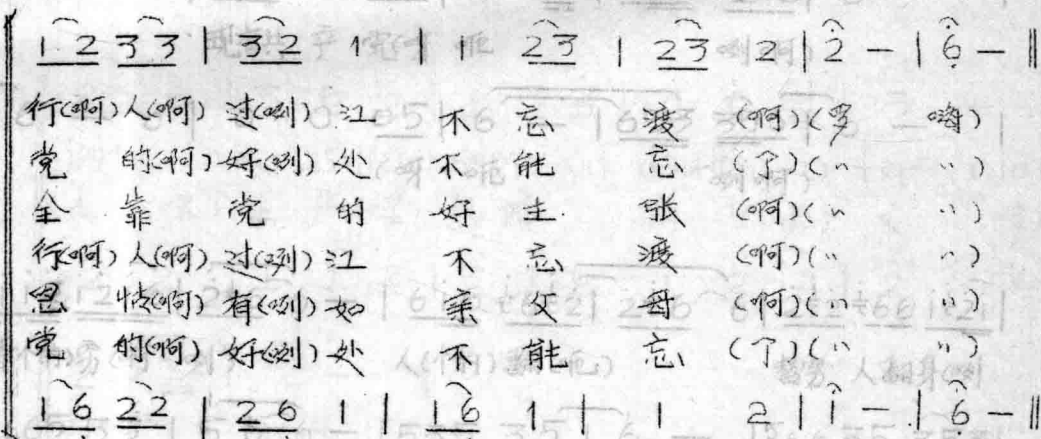 1 2 3 3 | 3 2 1 | 1 2 3 | 2 3 2 | 2 - | 6 - ‖
行(啊)人(啊)过(咧)江 不忘渡(啊)(罗嗬)
党的(啊)好(咧)处 不能忘(了)(〃 〃)
全靠党的好主张(啊)(〃 〃)
行(啊)人(啊)过(咧)江 不忘渡(啊)(〃 〃)
恩情(啊)有(咧)如亲父母(啊)(〃 〃)
党的(啊)好(咧)处 不能忘(了)(〃 〃)
1 6 2 2 | 2 6 1 | 1 6 1 | 1 2 | 1 - | 6 - ‖